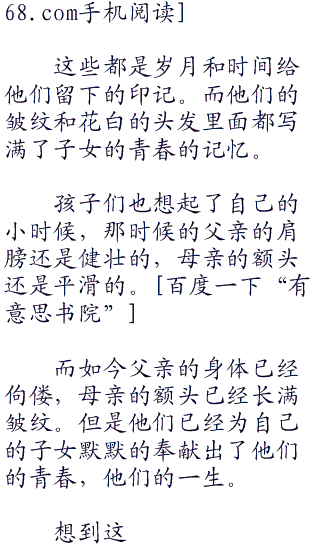 68.com手机阅读]
这些都是岁月和时间给
他们留下的印记。而他们的
皱纹和花白的头发里面都写
满了子女的青春的记忆。
孩子们也想起了自己的
小时候，那时候的父亲的肩
膀还是健壮的，母亲的额头
还是平滑的。[百度一下“有
意思书院”]
而如今父亲的身体已经
佝偻，母亲的额头已经长满
皱纹。但是他们已经为自己
的子女默默的奉献出了他们
的青春，他们的一生。
想到这